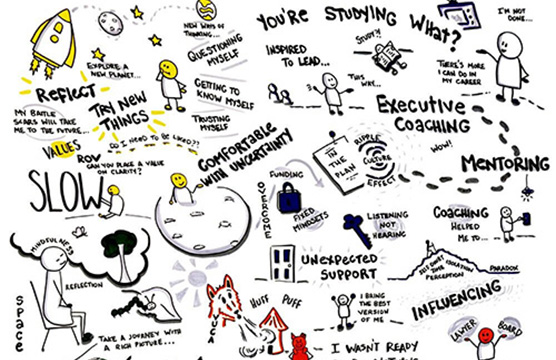 NEW WAYS OF
THINKING...
QUESTIONING
MYSELF
EXPLORE A
NEW PLANET...
GETTING TO
KNOW MYSELF
REFLECT
MY BATTLE
SCARS WILL TAKE
ME TO THE FUTURE...
TRY NEW
THINGS
TRUSTING
MYSELF
DO I NEED TO BE LIKED??
VALUES
ROW
CAN YOU PLACE A VALUE
ON CLARITY?
SLOW
COMFORTABLE
WITH UNCERTAINTY
MINDFULNESS
REFLECTION
SPACE
TAKE A JOURNEY WITH
A RICH PICTURE...
YOU'RE STUDYING
WHAT?
STUDY?!
I'M NOT
DONE...
INSPIRED
TO LEAD...
THIS
WAY...
THERE'S MORE
I CAN DO IN
MY CAREER
EXECUTIVE
COACHING
WOW!
MENTORING
IN
THE
PLAN
RIPPLE
CULTURE
EFFECT
FUNDING
OVERCOME
FIXED
MINDSETS
LISTENING
NOT
HEARING
COACHING
HELPED
ME TO...
UNEXPECTED
SUPPORT
SELF DOUBT
LOCATION
TIME
PERCEPTION
PARADOX
INFLUENCING
VUCA
HUFF
PUFF
I BRING THE
BEST
VERSION OF
ME...
LAWYER
BOARD
I WASN'T READY